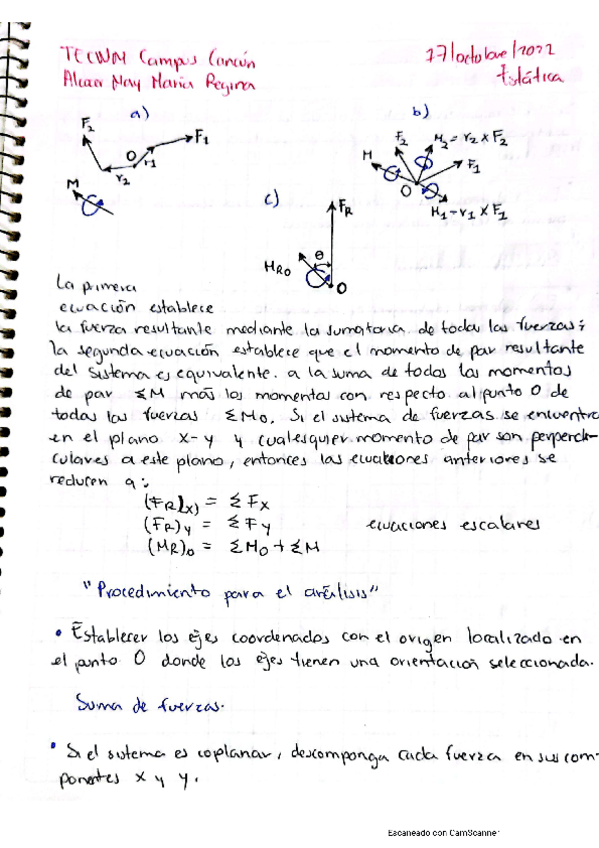 TECNM Campus Cancún
17/octubre/2022
Alcazar May Maria Regina
Estática
a)
F2
O
r1
F1
r2
M
b)
F2
M2 = r2 x F2
M
F1
O
M1 = r1 x F1
c)
FR
θ
MRO
O
La primera
ecuación establece
la fuerza resultante mediante la sumatoria de todas las fuerzas;
la segunda ecuación establece que el momento de par resultante
del sistema es equivalente a la suma de todos los momentos
de par ΣM más los momentos con respecto al punto O de
todas las fuerzas ΣMo. Si el sistema de fuerzas se encuentra
en el plano x-y y cualesquier momento de par son perpendi-
culares a este plano, entonces las ecuaciones anteriores se
reducen a:
(FR)x) = ΣFx
(FR)y = ΣFy ecuaciones escalares
(MR)o = ΣMo + ΣM
"Procedimiento para el análisis"
• Establecer los ejes coordenados con el origen localizado en
el punto O donde los ejes tienen una orientación seleccionada.
Suma de fuerzas.
• Si el sistema es coplanar, descomponga cada fuerza en sus com-
ponentes x y y.
Escaneado con CamScanner